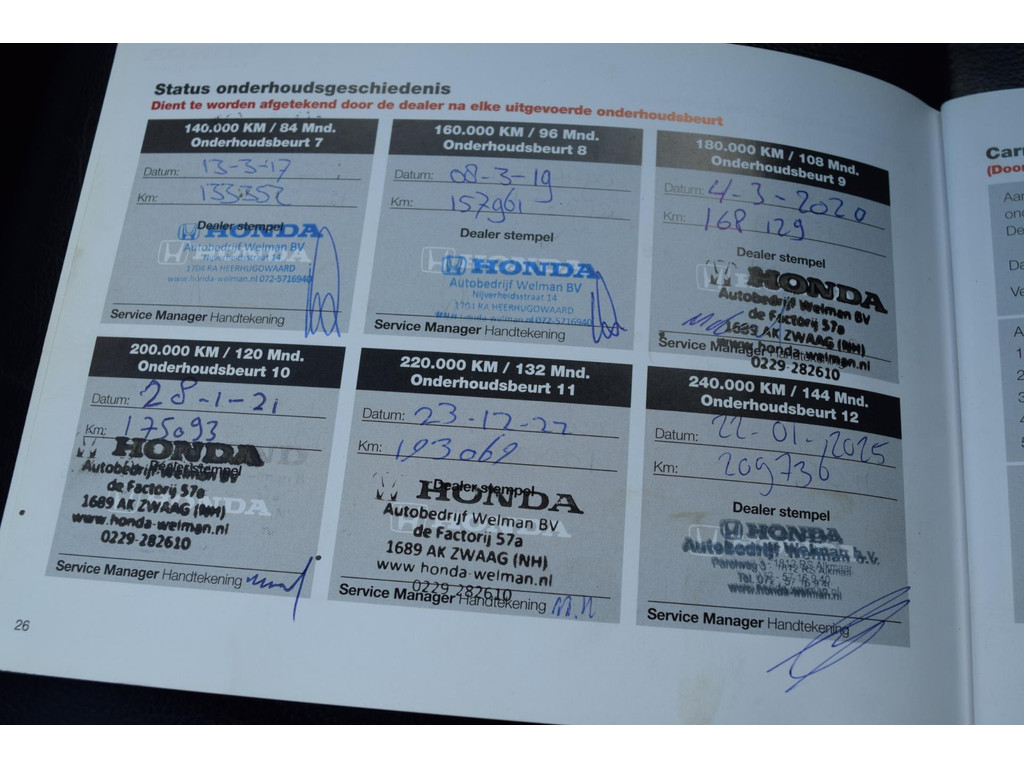 Status onderhoudsgeschiedenis
Dient te worden afgetekend door de dealer na elke uitgevoerde onderhoudsbeurt
140.000 KM / 84 Mnd.
Onderhoudsbeurt 7
Datum: 13-3-17
Km: 133352
Dealer stempel
HONDA
Autobedrijf Welman BV
Nijverheidsstraat 14
1704 RA HEERHUGOWAARD
www.honda-welman.nl 072-5716940
Service Manager Handtekening
160.000 KM / 96 Mnd.
Onderhoudsbeurt 8
Datum: 08-3-19
Km: 157961
Dealer stempel
HONDA
Autobedrijf Welman BV
Nijverheidsstraat 14
1704 RA HEERHUGOWAARD
www.honda-welman.nl 072-5716940
Service Manager Handtekening
180.000 KM / 108 Mnd.
Onderhoudsbeurt 9
Datum: 4-3-2020
Km: 168129
Dealer stempel
HONDA
Autobedrijf Welman BV
de Factorij 57a
1689 AK ZWAAG (NH)
www.honda-welman.nl
0229-282610
Service Manager Handtekening
200.000 KM / 120 Mnd.
Onderhoudsbeurt 10
Datum: 28-1-21
Km: 175093
Dealer stempel
HONDA
Autobedrijf Welman BV
de Factorij 57a
1689 AK ZWAAG (NH)
www.honda-welman.nl
0229-282610
Service Manager Handtekening
220.000 KM / 132 Mnd.
Onderhoudsbeurt 11
Datum: 23-12-22
Km: 193069
Dealer stempel
HONDA
Autobedrijf Welman BV
de Factorij 57a
1689 AK ZWAAG (NH)
www.honda-welman.nl
0229-282610
Service Manager Handtekening
240.000 KM / 144 Mnd.
Onderhoudsbeurt 12
Datum: 22-01-2025
Km: 209736
Dealer stempel
HONDA
Autobedrijf Welman b.v.
www.honda-welman.nl
Service Manager Handtekening
26